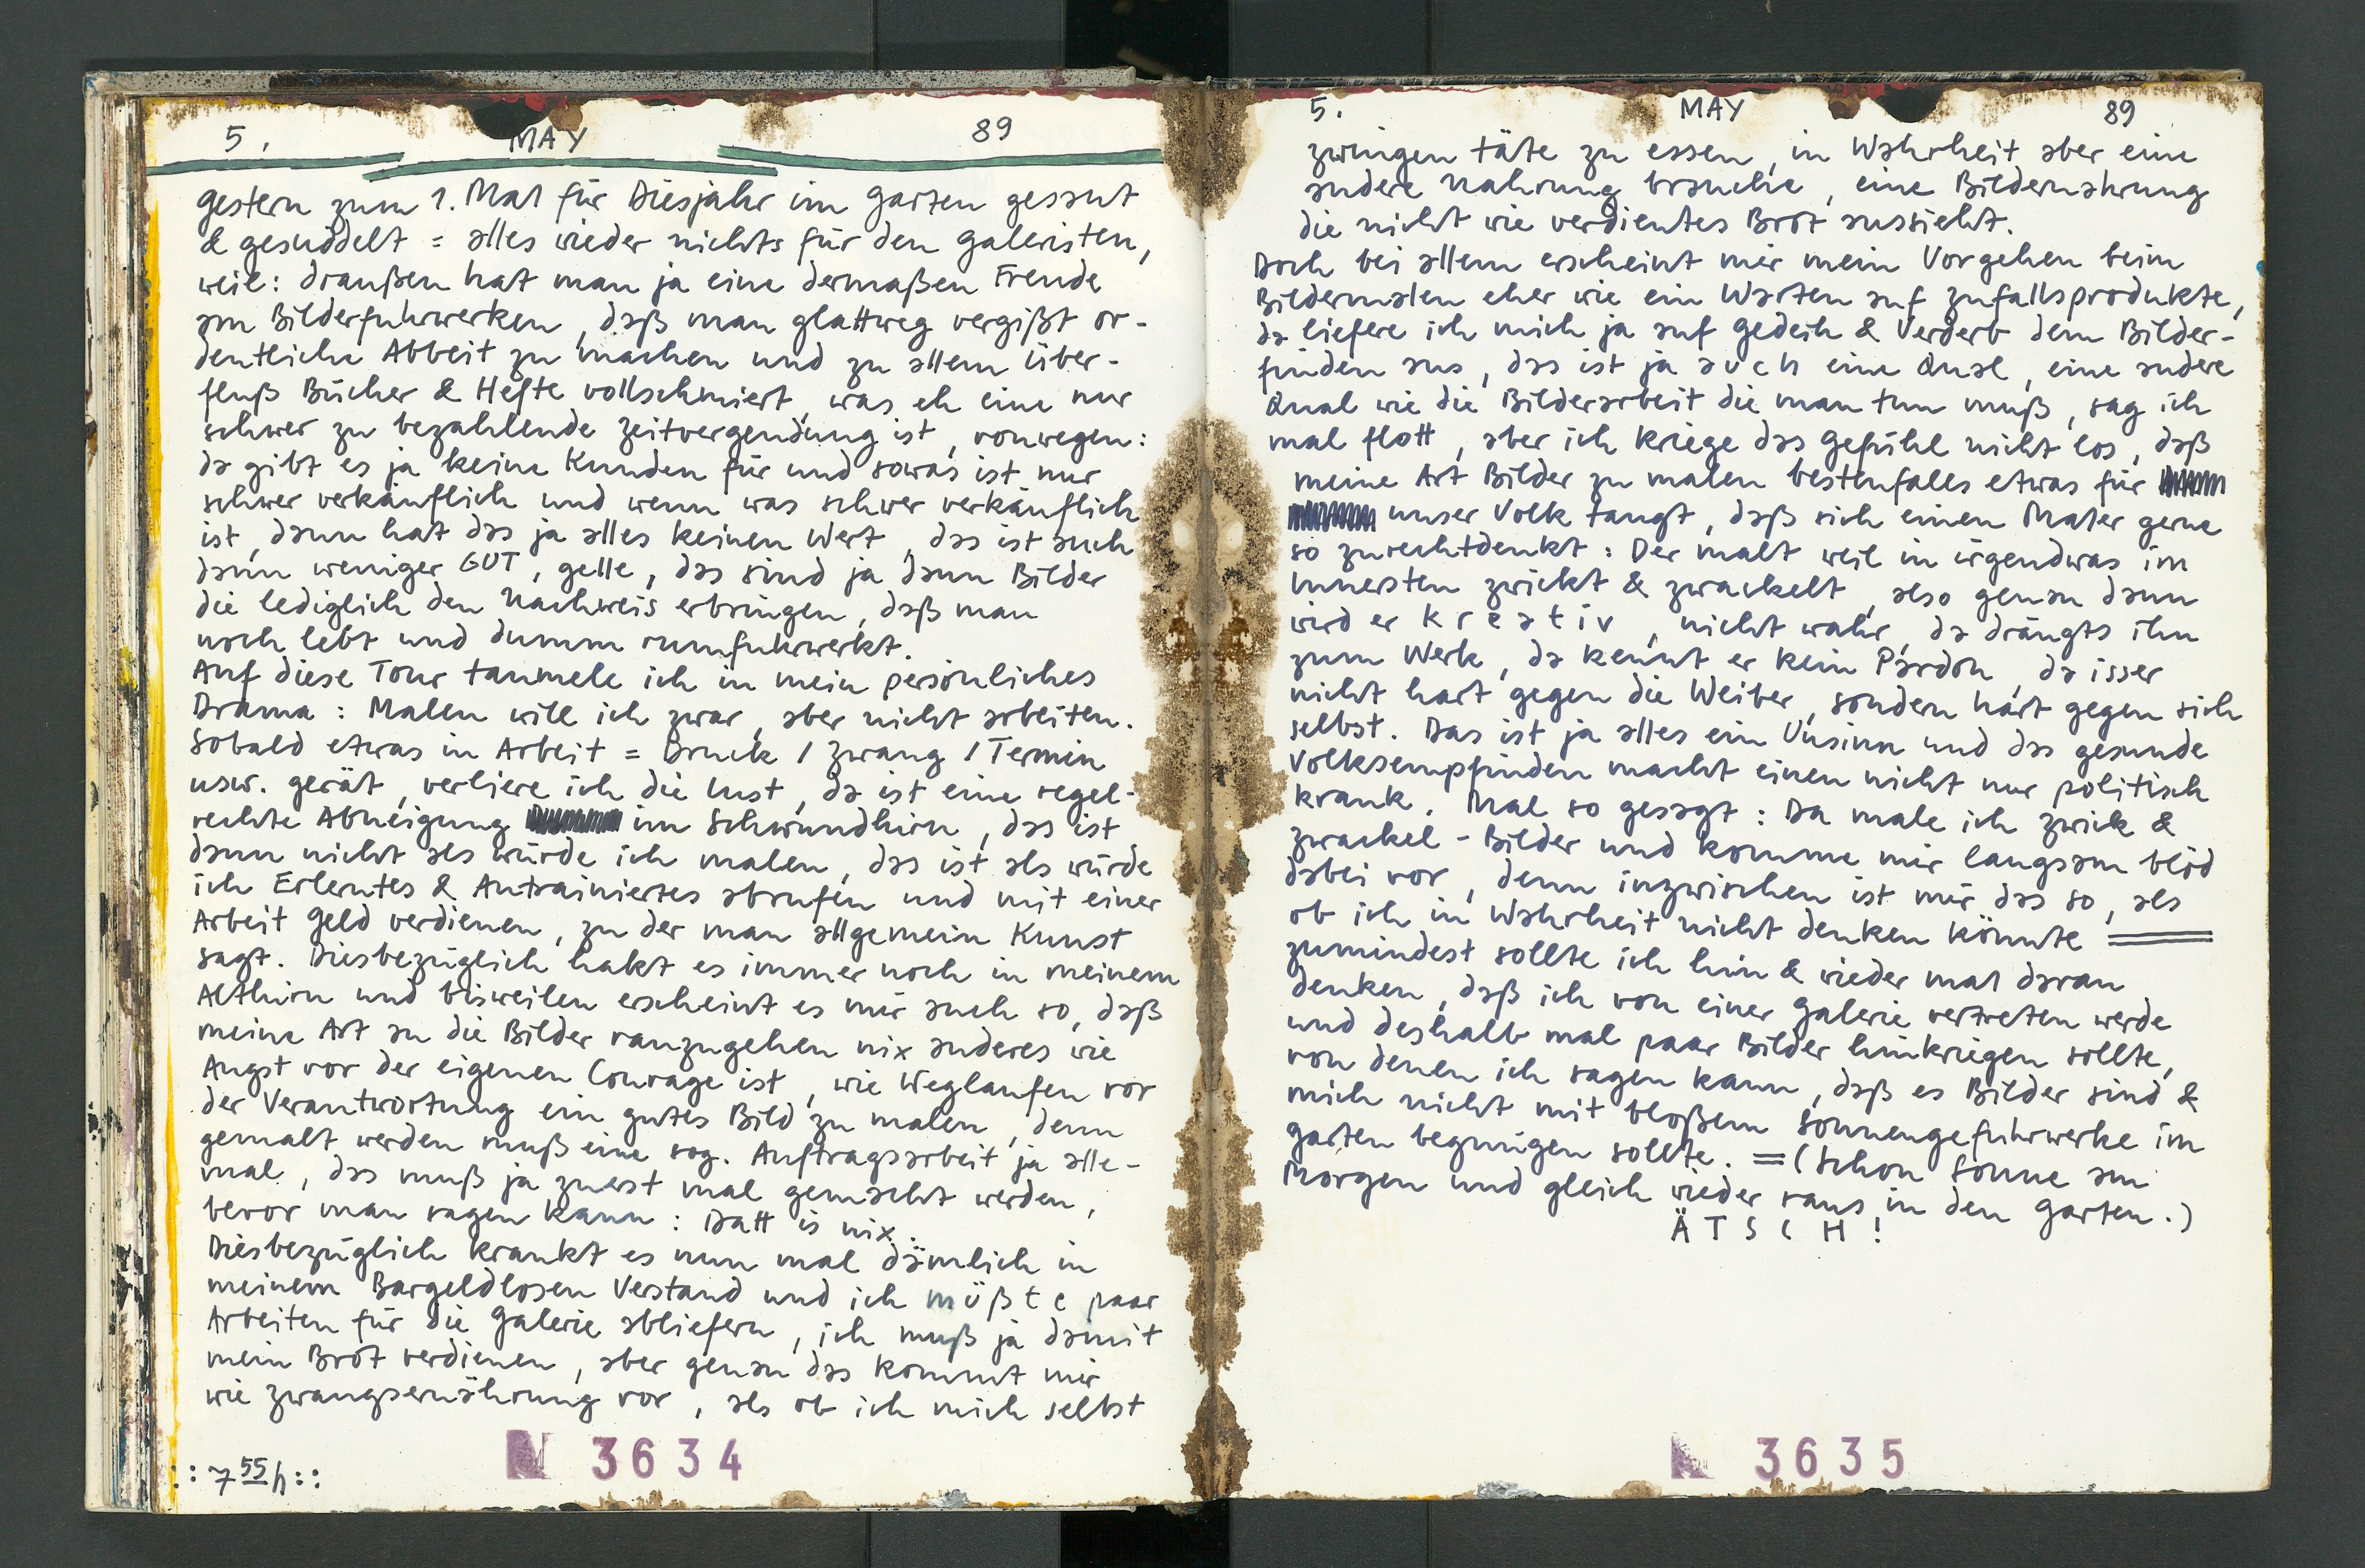 5. MAY 89
gestern zum 1. Mal für Diesjahr im Garten gesaut
& gesuddelt = alles wieder nichts für den Galeristen,
weil: draußen hat man ja eine dermaßen Freude
am Bilderfuhrwerken, daß man glattweg vergißt or-
dentliche Abbeit zu machen und zu allem Über-
fluß Bücher & Hefte vollschmiert, was eh eine nur
schwer zu bezahlende Zeitvergeudung ist, vonwegen:
da gibt es ja keine Kunden für und sowas ist nur
schwer verkäuflich und wenn was schwer verkäuflich
ist, dann hat das ja alles keinen Wert, das ist auch
dann weniger GUT, gelle, das sind ja dann Bilder
die lediglich den Nachweis erbringen, daß man
noch lebt und dumm rumfuhrwerkt.
Auf diese Tour taumele ich in mein persönliches
Drama: Malen will ich zwar, aber nicht arbeiten.
Sobald etwas in Arbeit = Druck / Zwang / Termin
usw. gerät, verliere ich die Lust, da ist eine regel-
rechte Abneigung im Schwundhirn, das ist
dann nicht als würde ich malen, das ist als würde
ich Erlerntes & Antrainiertes abrufen und mit einer
Arbeit Geld verdienen, zu der man allgemein Kunst
sagt. Diesbezüglich hakt es immer noch in meinem
Althirn und bisweilen erscheint es mir auch so, daß
meine Art an die Bilder ranzugehen nix anderes wie
Angst vor der eigenen Courage ist, wie Weglaufen vor
der Verantwortung ein gutes Bild zu malen, denn
gemalt werden muß eine sog. Auftragsarbeit ja alle-
mal, das muß ja zuerst mal gemacht werden,
bevor man sagen kann: Datt is nix.
Diesbezüglich krankt es nun mal dämlich in
meinem Bargeldlosen Verstand und ich müßte paar
Arbeiten für die Galerie abliefern, ich muß ja damit
mein Brot verdienen, aber genau das kommt mir
wie Zwangsernährung vor, als ob ich mich selbst
::7 55 h::
N 3634
5. MAY 89
zwingen täte zu essen, in Wahrheit aber eine
andere Nahrung brauche, eine Bildernahrung
die nicht wie verdientes Brot aussieht.
Doch bei allem erscheint mir mein Vorgehen beim
Bildermalen eher wie ein Warten auf Zufallsprodukte,
da liefere ich mich ja auf Gedeih & Verderb dem Bilder-
finden aus, das ist ja auch eine Qual, eine andere
Qual wie die Bilderarbeit die man tun muß, sag ich
mal flott, aber ich kriege das Gefühl nicht los, daß
meine Art Bilder zu malen bestenfalls etwas für
unser Volk taugt, daß sich einen Maler gerne
so zurechtdenkt: Der malt weil in irgendwas im
Innersten zwickt & zwackelt, also genau dann
wird er kreativ, nicht wahr, da drängts ihn
zum Werk, da kennt er kein Pardon, da isser
nicht hart gegen die Weiber, sondern hart gegen sich
selbst. Das ist ja alles ein Unsinn und das gesunde
Volksempfinden macht einen nicht nur politisch
krank. Mal so gesagt: Da male ich Zwick &
Zwackel-Bilder und komme mir langsam blöd
dabei vor, denn inzwischen ist mir das so, als
ob ich in Wahrheit nicht denken könnte ═
zumindest sollte ich hin & wieder mal daran
denken, daß ich von einer Galerie vertreten werde
und deshalb mal paar Bilder hinkriegen sollte,
von denen ich sagen kann, daß es Bilder sind &
mich nicht mit bloßem Sonnengefuhrwerke im
Garten begnügen sollte. = (Schon Sonne am
Morgen und gleich wieder raus in den Garten.)
ÄTSCH!
N 3635